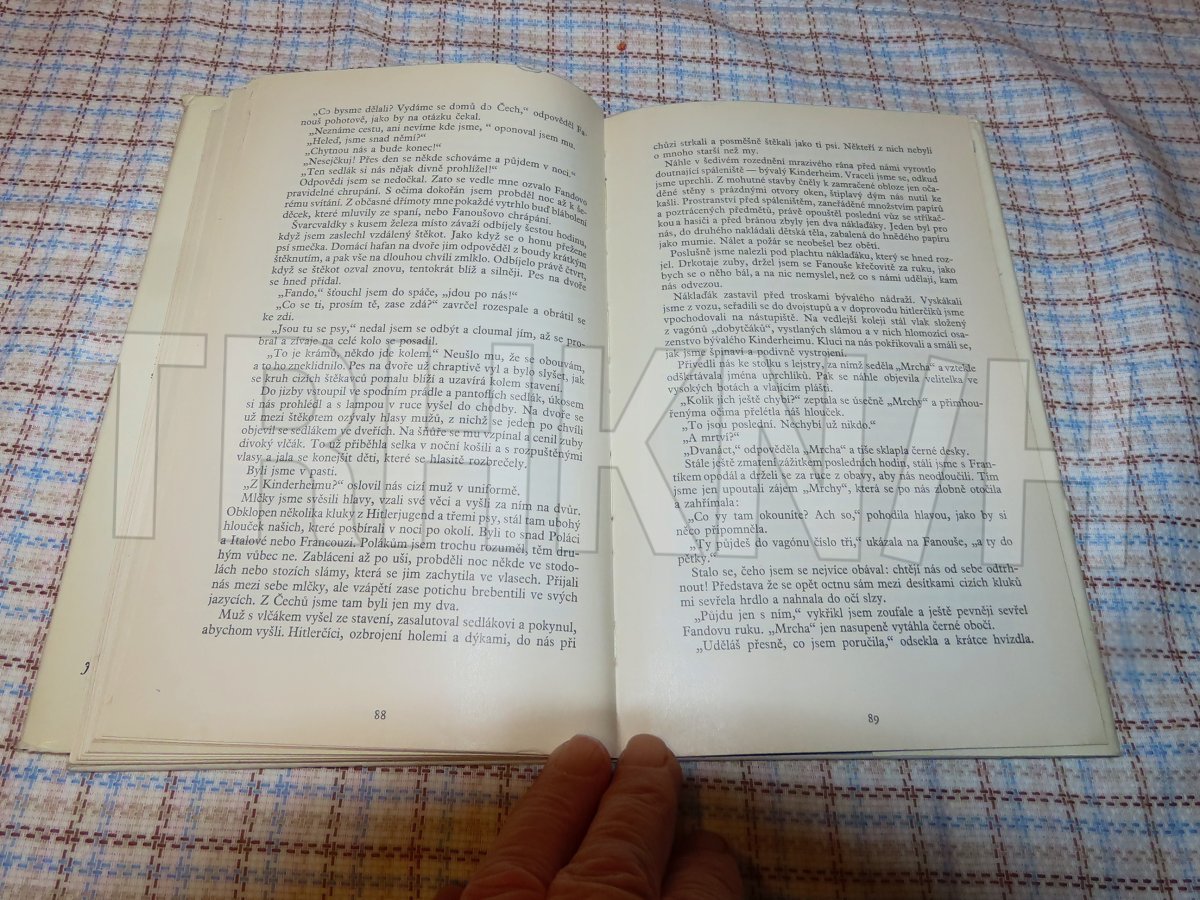 „Co bysme dělali? Vydáme se domů do Čech,“ odpověděl Fa-
nouš pohotově, jako by na otázku čekal.
„Neznáme cestu, ani nevíme kde jsme, “ oponoval jsem mu.
„Heleď, jsme snad němí?“
„Chytnou nás a bude konec!“
„Nesejčkuj! Přes den se někde schováme a půjdem v noci.“
„Ten sedlák si nás nějak divně prohlížel!“
Odpovědi jsem se nedočkal. Zato se vedle mne ozvalo Fandovo
pravidelné chrupání. S očima dokořán jsem probděl noc až k še-
rému svítání. Z občasné dřímoty mne pokaždé vytrhlo buď blábolení
děcek, které mluvily ze spaní, nebo Fanoušovo chrápání.
Švarcvaldky s kusem železa místo závaží odbijely šestou hodinu,
když jsem zaslechl vzdálený štěkot. Jako když se o honu přežene
psí smečka. Domácí hafan na dvoře jim odpověděl z boudy krátkým
štěknutím, a pak vše na dlouhou chvíli zmlklo. Odbíjelo právě čtvrt,
když se štěkot ozval znovu, tentokrát blíž a silněji. Pes na dvoře
se hned přidal.
„Fando,“ šťouchl jsem do spáče, „jdou po nás!“
„Co se ti, prosím tě, zase zdá?“ zavrčel rozespale a obrátil se
ke zdi.
„Jsou tu se psy,“ nedal jsem se odbýt a cloumal jím, až se pro-
bral a zívaje na celé kolo se posadil.
„To je krámů, někdo jde kolem.“ Neušlo mu, že se obouvám,
a to ho zneklidnilo. Pes na dvoře už chraptivě vyl a bylo slyšet, jak
se kruh cizích štěkavců pomalu blíží a uzavírá kolem stavení.
Do jizby vstoupil ve spodním prádle a pantoflích sedlák, úkosem
si nás prohlédl a s lampou v ruce vyšel do chodby. Na dvoře se
už mezi štěkotem ozývaly hlasy mužů, z nichž se jeden po chvíli
objevil se sedlákem ve dveřích. Na šňůře se mu vzpínal a cenil zuby
divoký vlčák. To už přiběhla selka v noční košili a s rozpuštěnými
vlasy a jala se konejšit děti, které se hlasitě rozbrečely.
Byli jsme v pasti.
„Z Kinderheimu?“ oslovil nás cizí muž v uniformě.
Mlčky jsme svěsili hlavy, vzali své věci a vyšli za ním na dvůr.
Obklopen několika kluky z Hitlerjugend a třemi psy, stál tam ubohý
hlouček našich, které posbírali v noci po okolí. Byli to snad Poláci
a Italové nebo Francouzi. Polákům jsem trochu rozuměl, těm dru-
hým vůbec ne. Zablácení až po uši, probděli noc někde ve stodo-
lách nebo stozích slámy, která se jim zachytila ve vlasech. Přijali
nás mezi sebe mlčky, ale vzápětí zase potichu brebentili ve svých
jazycích. Z Čechů jsme tam byli jen my dva.
Muž s vlčákem vyšel ze stavení, zasalutoval sedlákovi a pokynul,
abychom vyšli. Hitlerčíci, ozbrojení holemi a dýkami, do nás při
3
88
chůzi strkali a posměšně štěkali jako ti psi. Někteří z nich nebyli
o mnoho starší než my.
Náhle v šedivém rozednění mrazivého rána před námi vyrostlo
doutnající spáleniště — bývalý Kinderheim. Vraceli jsme se, odkud
jsme uprchli. Z mohutné stavby čněly k zamračené obloze jen oča-
děné stěny s prázdnými otvory oken, štiplavý dým nás nutil ke
kašli. Prostranství před spáleništěm, zaneřáděné množstvím papírů
a poztrácených předmětů, právě opouštěl poslední vůz se stříkač-
kou a hasiči a před bránou zbyly jen dva nákladáky. Jeden byl pro
nás, do druhého nakládali dětská těla, zabalená do hnědého papíru
jako mumie. Nálet a požár se neobešel bez obětí.
Poslušně jsme nalezli pod plachtu nákladáku, který se hned roz-
jel. Drkotaje zuby, držel jsem se Fanouše křečovitě za ruku, jako
bych se o něho bál, a na nic nemyslel, než co s námi udělají, kam
nás odvezou.
Náklaďák zastavil před troskami bývalého nádraží. Vyskákali
jsme z vozu, seřadili se do dvojstupů a v doprovodu hitlerčíků jsme
vpochodovali na nástupiště. Na vedlejší koleji stál vlak složený
z vagónů „dobytčáků“, vystlaných slámou a v nich hlomozící osa-
zenstvo bývalého Kinderheimu. Kluci na nás pokřikovali a smáli se,
jak jsme špinaví a podivně vystrojení.
Přivedli nás ke stolku s lejstry, za nímž seděla „Mrcha“ a vztekle
odškrtávala jména uprchlíků. Pak se náhle objevila velitelka ve
vysokých botách a vlajícím plášti.
„Kolik jich ještě chybí?“ zeptala se úsečně „Mrchy“ a přimhou-
řenýma očima přelétla náš hlouček.
„To jsou poslední. Nechybí už nikdo.“
„A mrtví?“
„Dvanáct,“ odpověděla „Mrcha“ a tiše sklapla černé desky.
Stále ještě zmateni zážitkem posledních hodin, stáli jsme s Fran-
tíkem opodál a drželi se za ruce z obavy, aby nás neodloučili. Tím
jsme jen upoutali zájem „Mrchy“, která se po nás zlobně otočila
a zahřímala:
„Co vy tam okouníte? Ach so,“ pohodila hlavou, jako by si
něco připomněla.
„Ty půjdeš do vagónu číslo tři,“ ukázala na Fanouše, „a ty do
pětky.“
Stalo se, čeho jsem se nejvíce obával: chtějí nás od sebe odtrh-
nout! Představa že se opět octnu sám mezi desítkami cizích kluků
mi sevřela hrdlo a nahnala do očí slzy.
„Půjdu jen s ním,“ vykřikl jsem zoufale a ještě pevněji sevřel
Fandovu ruku. „Mrcha“ jen nasupeně vytáhla černé obočí.
„Uděláš přesně, co jsem poručila,“ odsekla a krátce hvízdla.
89
TRHKNIH